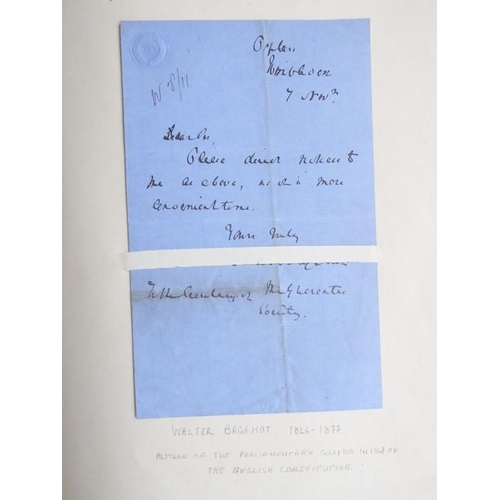 W 8/11
Wimbledon
7 Novr
Dear Sir
Please direct notices to
me as above, as it is more
convenient to me.
Yours truly
To the Secretary of
Society.
WALTER BAGEHOT 1826-1877
AUTHOR OF THE PARLIAMENTARY
THE ENGLISH CONSTITUTION